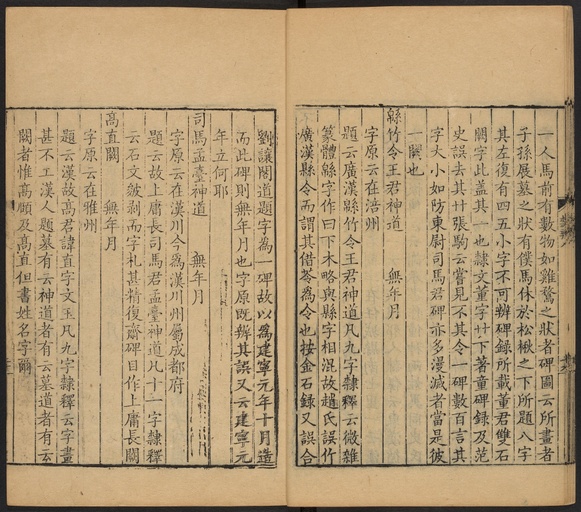 一人馬前有數物如雞鶩之狀者碑圖云所畫者
子孫展墓之狀有僕馬休於松楸之下所題八字
其左復有四五小字不可辨碑錄所載董君雙石
闕字此蓋其一也隸文董字廿下著童碑錄及范
史誤去其廿張駒云嘗見不其令一碑數百言其
字大小如防東尉司馬君碑亦多漫滅者當是彼
一闕也
緜竹令王君神道 無年月
字原云在涪州
題云廣漢緜竹令王君神道凡九字隸釋云微雜
篆體緜字作曰下木略與縣字相混故趙氏誤作
廣漢縣令而謂其借苓為令也按金石錄又誤合
劉讓閣道題字為一碑故以為建寧元年十月造
而此碑則無年月也字原既辨其誤又云建寧元
年立何耶
司馬孟臺神道 無年月
字原云在漢川今為漢川州屬成都府
題云故上庸長司馬君孟臺神道凡十一字隸釋
云石文皴剥而字札甚精復齋碑目作上庸長闕
高直闕 無年月
字原云在雅州
題云漢故高君諱直字文玉凡九字隸釋云字畫
甚不工漢人題墓有云神道者有云墓道者有云
闕者惟高頤及高直但書姓名字爾